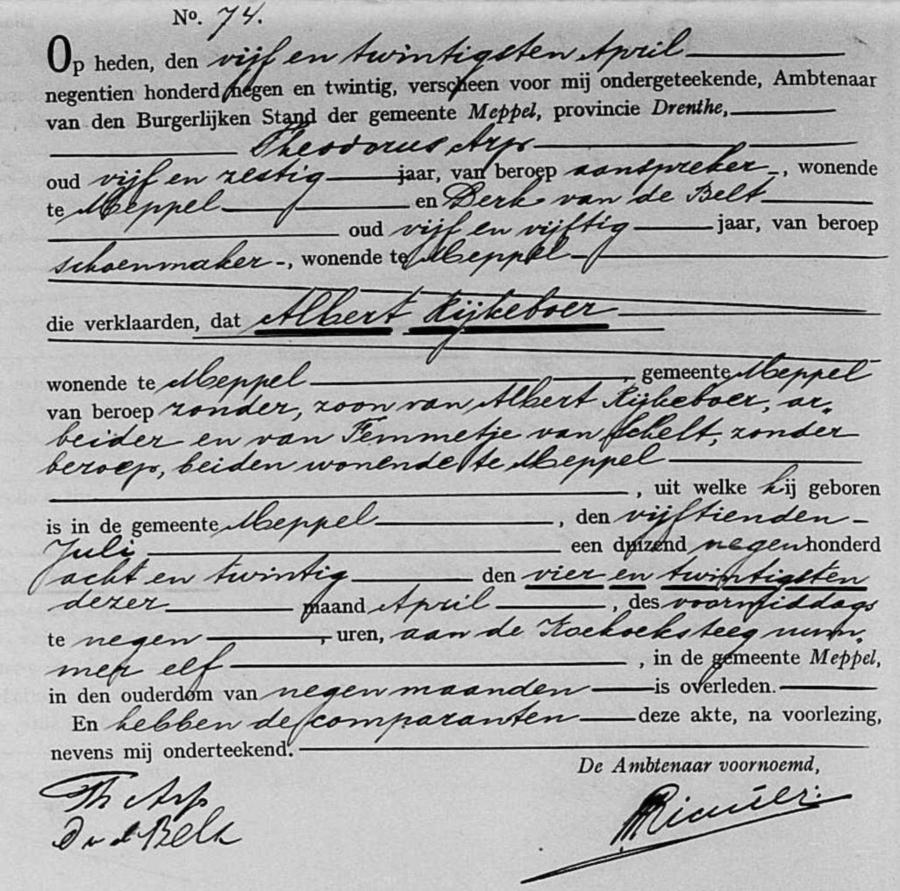 No. 74.
Op heden, den vijf en twintigsten April
negentien honderd negen en twintig, verscheen voor mij ondergeteekende, Ambtenaar
van den Burgerlijken Stand der gemeente Meppel, provincie Drenthe,
Theodorus Arp
oud vijf en zestig jaar, van beroep aanspreker -, wonende
te Meppel en Derk van de Belt
oud vijf en vijftig jaar, van beroep
schoenmaker -, wonende te Meppel -
die verklaarden, dat Albert Rijkeboer
wonende te Meppel, gemeente Meppel
van beroep zonder, zoon van Albert Rijkeboer, ar-
beider en van Femmetje van Schelt, zonder
beroep, beiden wonende te Meppel
, uit welke hij geboren
is in de gemeente Meppel, den vijftienden -
Juli een duizend negenhonderd
acht en twintig den vier en twintigsten
dezer maand April, des voormiddags
te negen, uren, aan de Koekoeksteeg num-
mer elf, in de gemeente Meppel,
in den ouderdom van negen maanden is overleden.
En hebben de comparanten deze akte, na voorlezing,
nevens mij onderteekend.
De Ambtenaar voornoemd,
Th Arp
D v d Belt